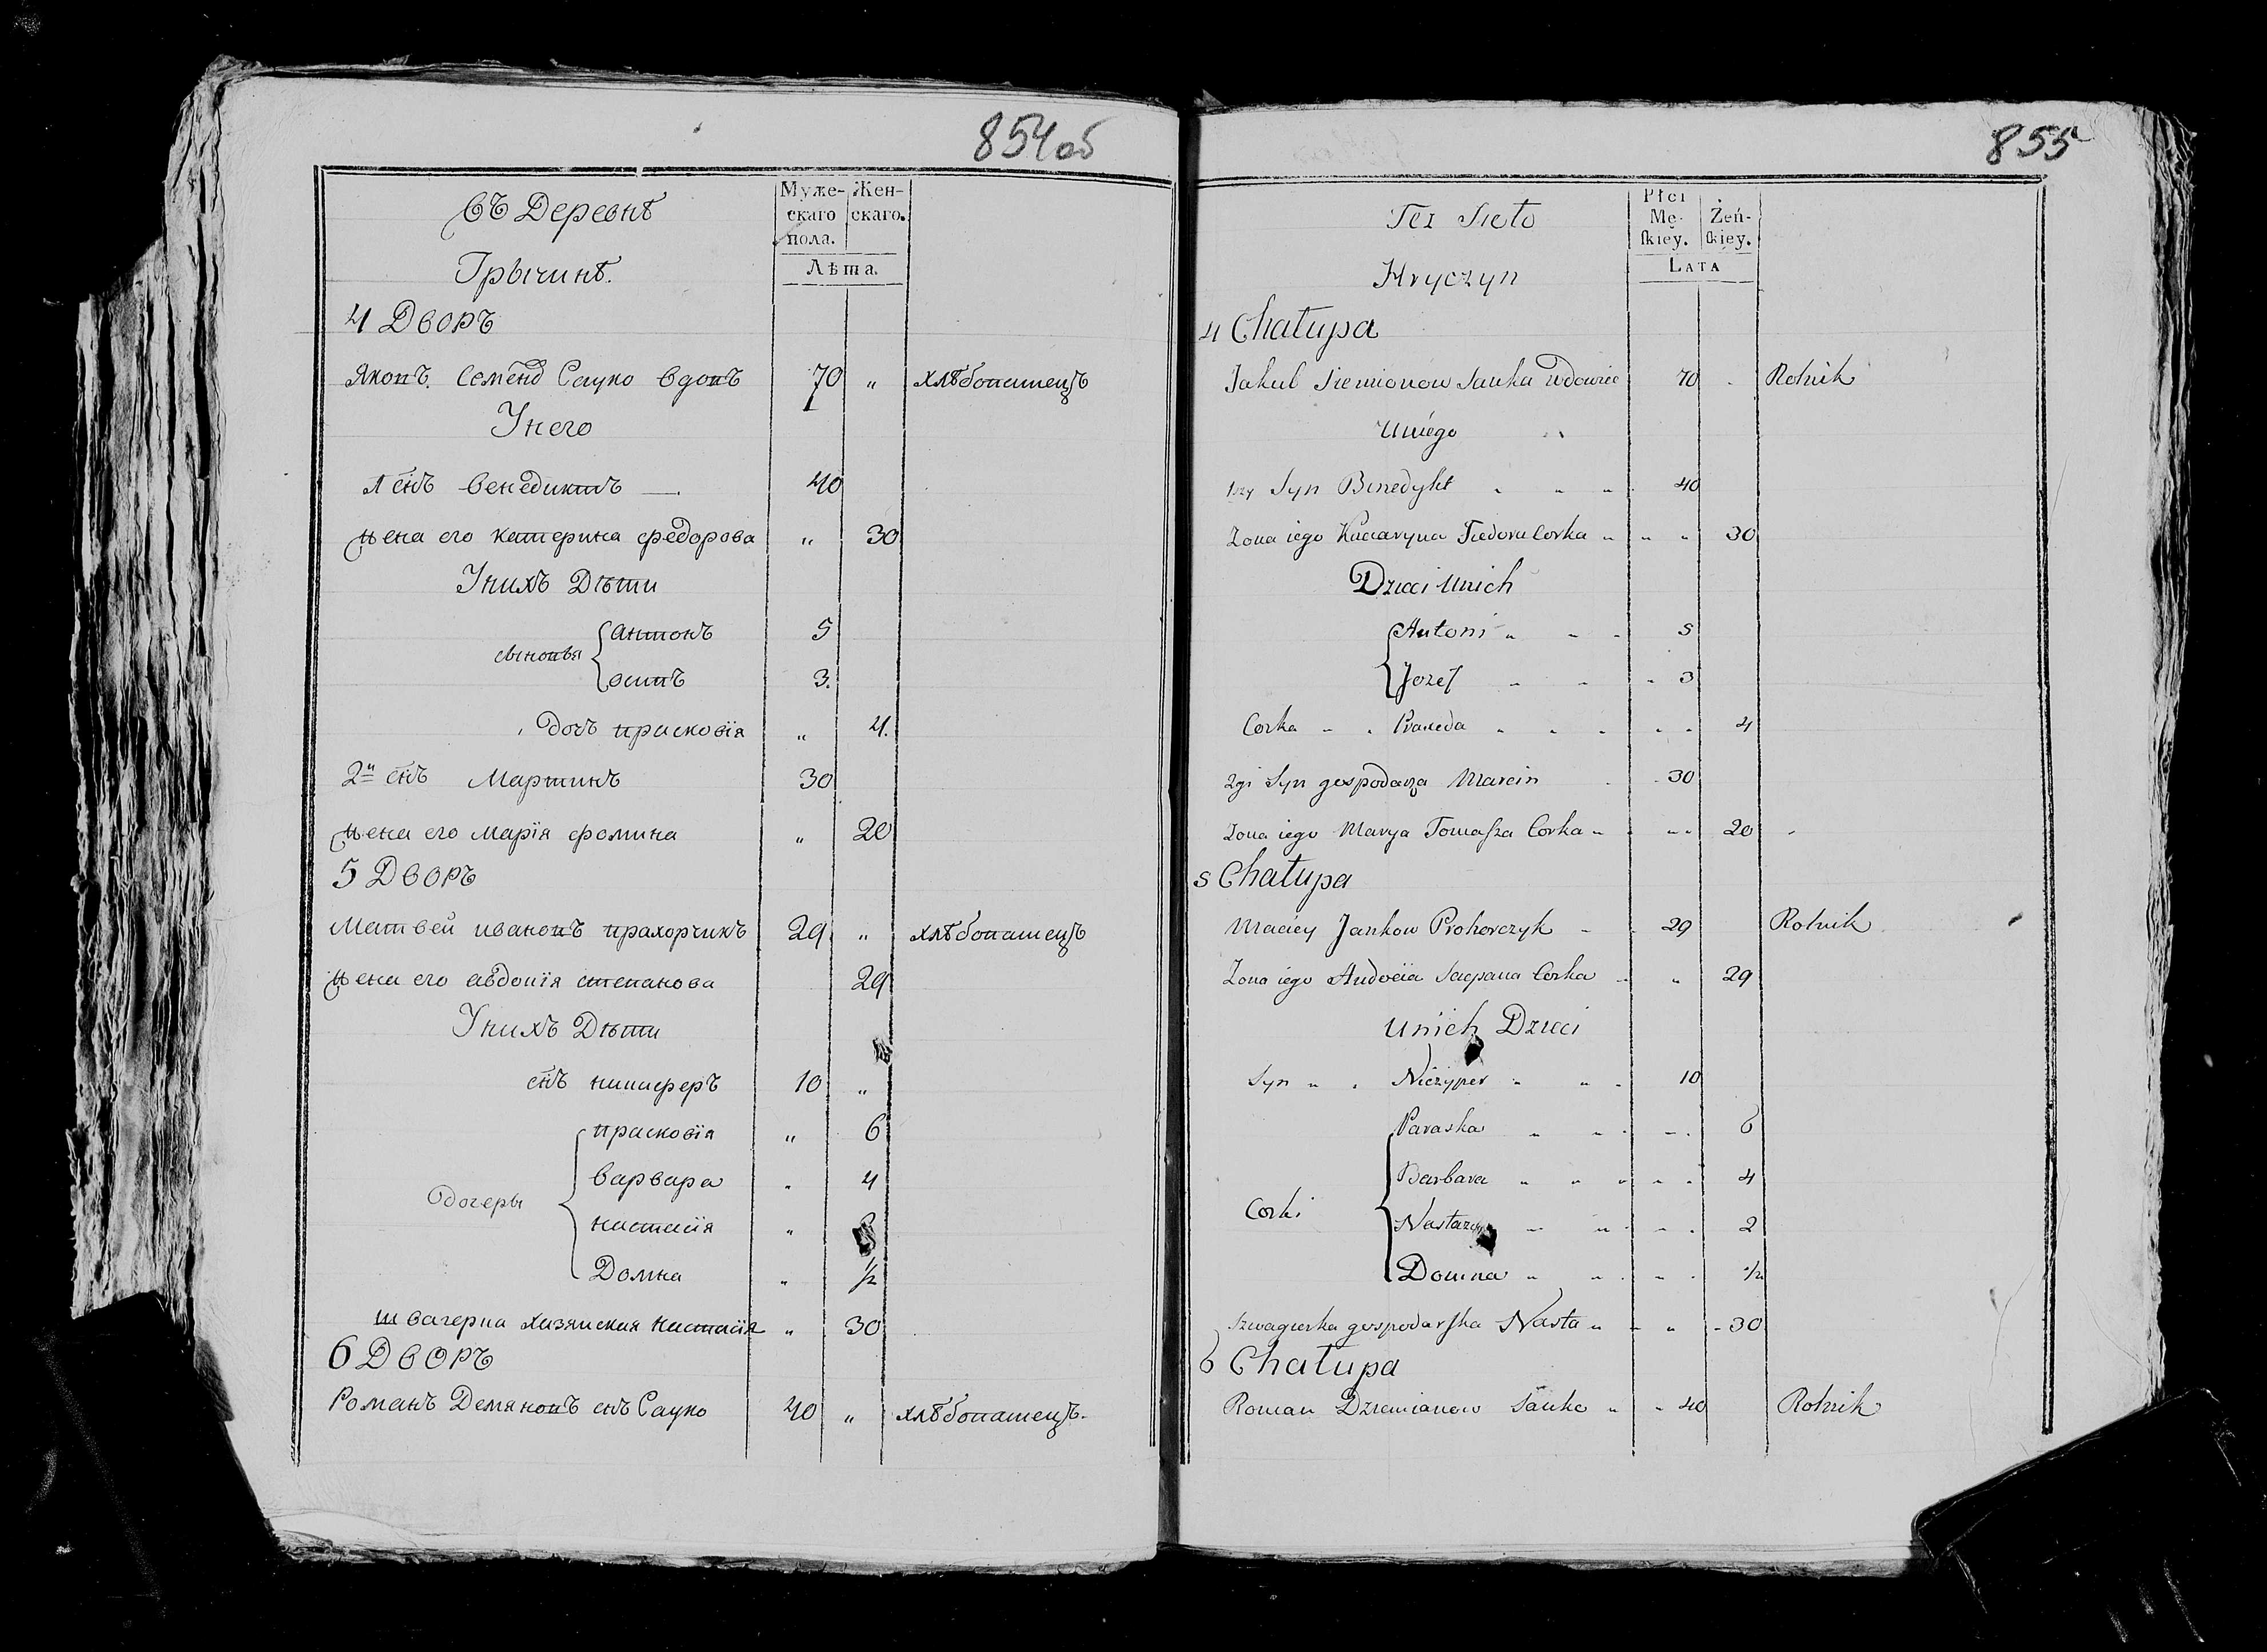 854об
въ Деревнѣ
Муже-скаго пола.
Жен-скаго.
Лѣта.
Грычинѣ.
4 Дворъ
Яковъ Семенов Сауко вдовъ 70 „ хлѣбопашецъ
У него
1 снъ Венедиктъ — 40
жена его катерина федорова „ 30
У нихъ Дѣти
сыновья
антонъ 5
осипъ 3.
дочь прасковiя „ 4.
2й снъ Мартинъ 30
жена его марiя фомина „ 20
5 Дворъ
Матвей ивановъ прахорчикъ 29 „ хлѣбопашецъ
жена его авдотiя степанова 29
У нихъ Дѣти
снъ ничиферъ 10 „
дочеры
прасковiя „ 6
варвара „ 4
настасiя „
Домна „ 1/2
швагерка хазяиская настасiя „ 30
6 Дворъ
Романъ Демяновъ снъ Сауко 40 „ хлѣбопашецъ.
855
Też Sioło
Płci Mę-skiéy.
Żeń-skiéy.
Lata
Hryczyn
4 Chałupa
Jakub Siemionow Sauka wdowiec 70 Rolnik
U niégo
1szy Syn Benedykt 40
Żona iego Kaciaryna Fiedora Corka 30
Dzieci u nich
Antoni 5
Jozef 3
Corka Praxeda 4
2gi Syn gospodarza Marcin 30
Żona iego Marya Tomasza Corka 20
5 Chałupa
Maciéy Jankow Prohorczyk 29 Rolnik
Żona iego Audocia Sacpana Corka 29
U nich Dzieci
Syn Niczyper 10
Corki
Paraska 6
Barbara 4
Nastazya 2
Domna 1/2
Szwagierka gospodarska Nasta 30
6 Chałupa
Roman Dziemianow Sauko 40 Rolnik